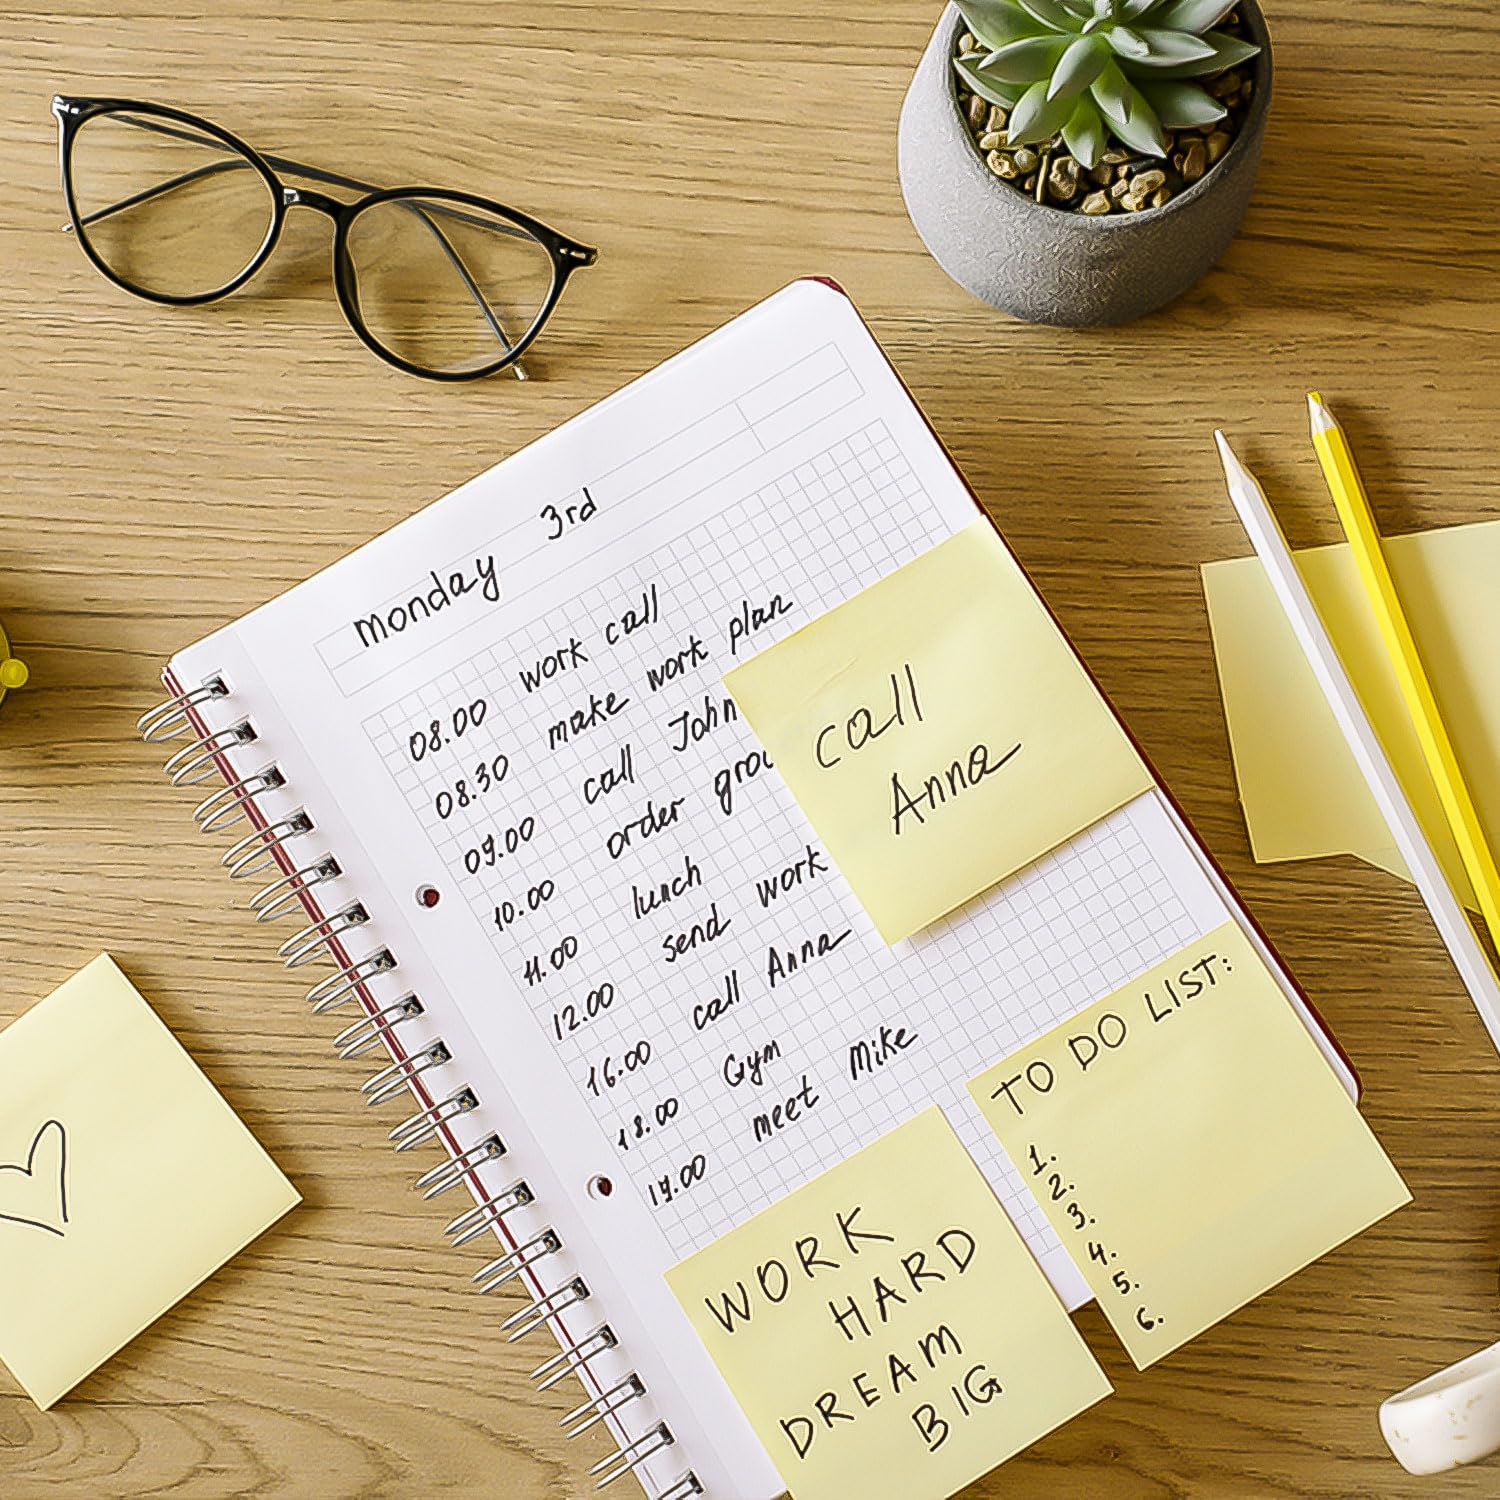 monday 3rd
08.00 work call
08.30 make work plan
09.00 call John
10.00 order
11.00 lunch
12.00 send work
16.00 call Anna
18.00 Gym
19.00 meet Mike
call
Anna
TO DO LIST:
1.
2.
3.
4.
5.
6.
WORK
HARD
DREAM
BIG